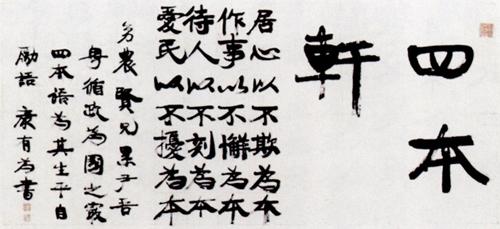 四本
軒
居心以不欺為本
作事以不懈為本
待人以不刻為本
愛民以不擾為本
農賢兄累尹吾
粤循政為國之㝡
四本語為其生平自
勵語 康有為書